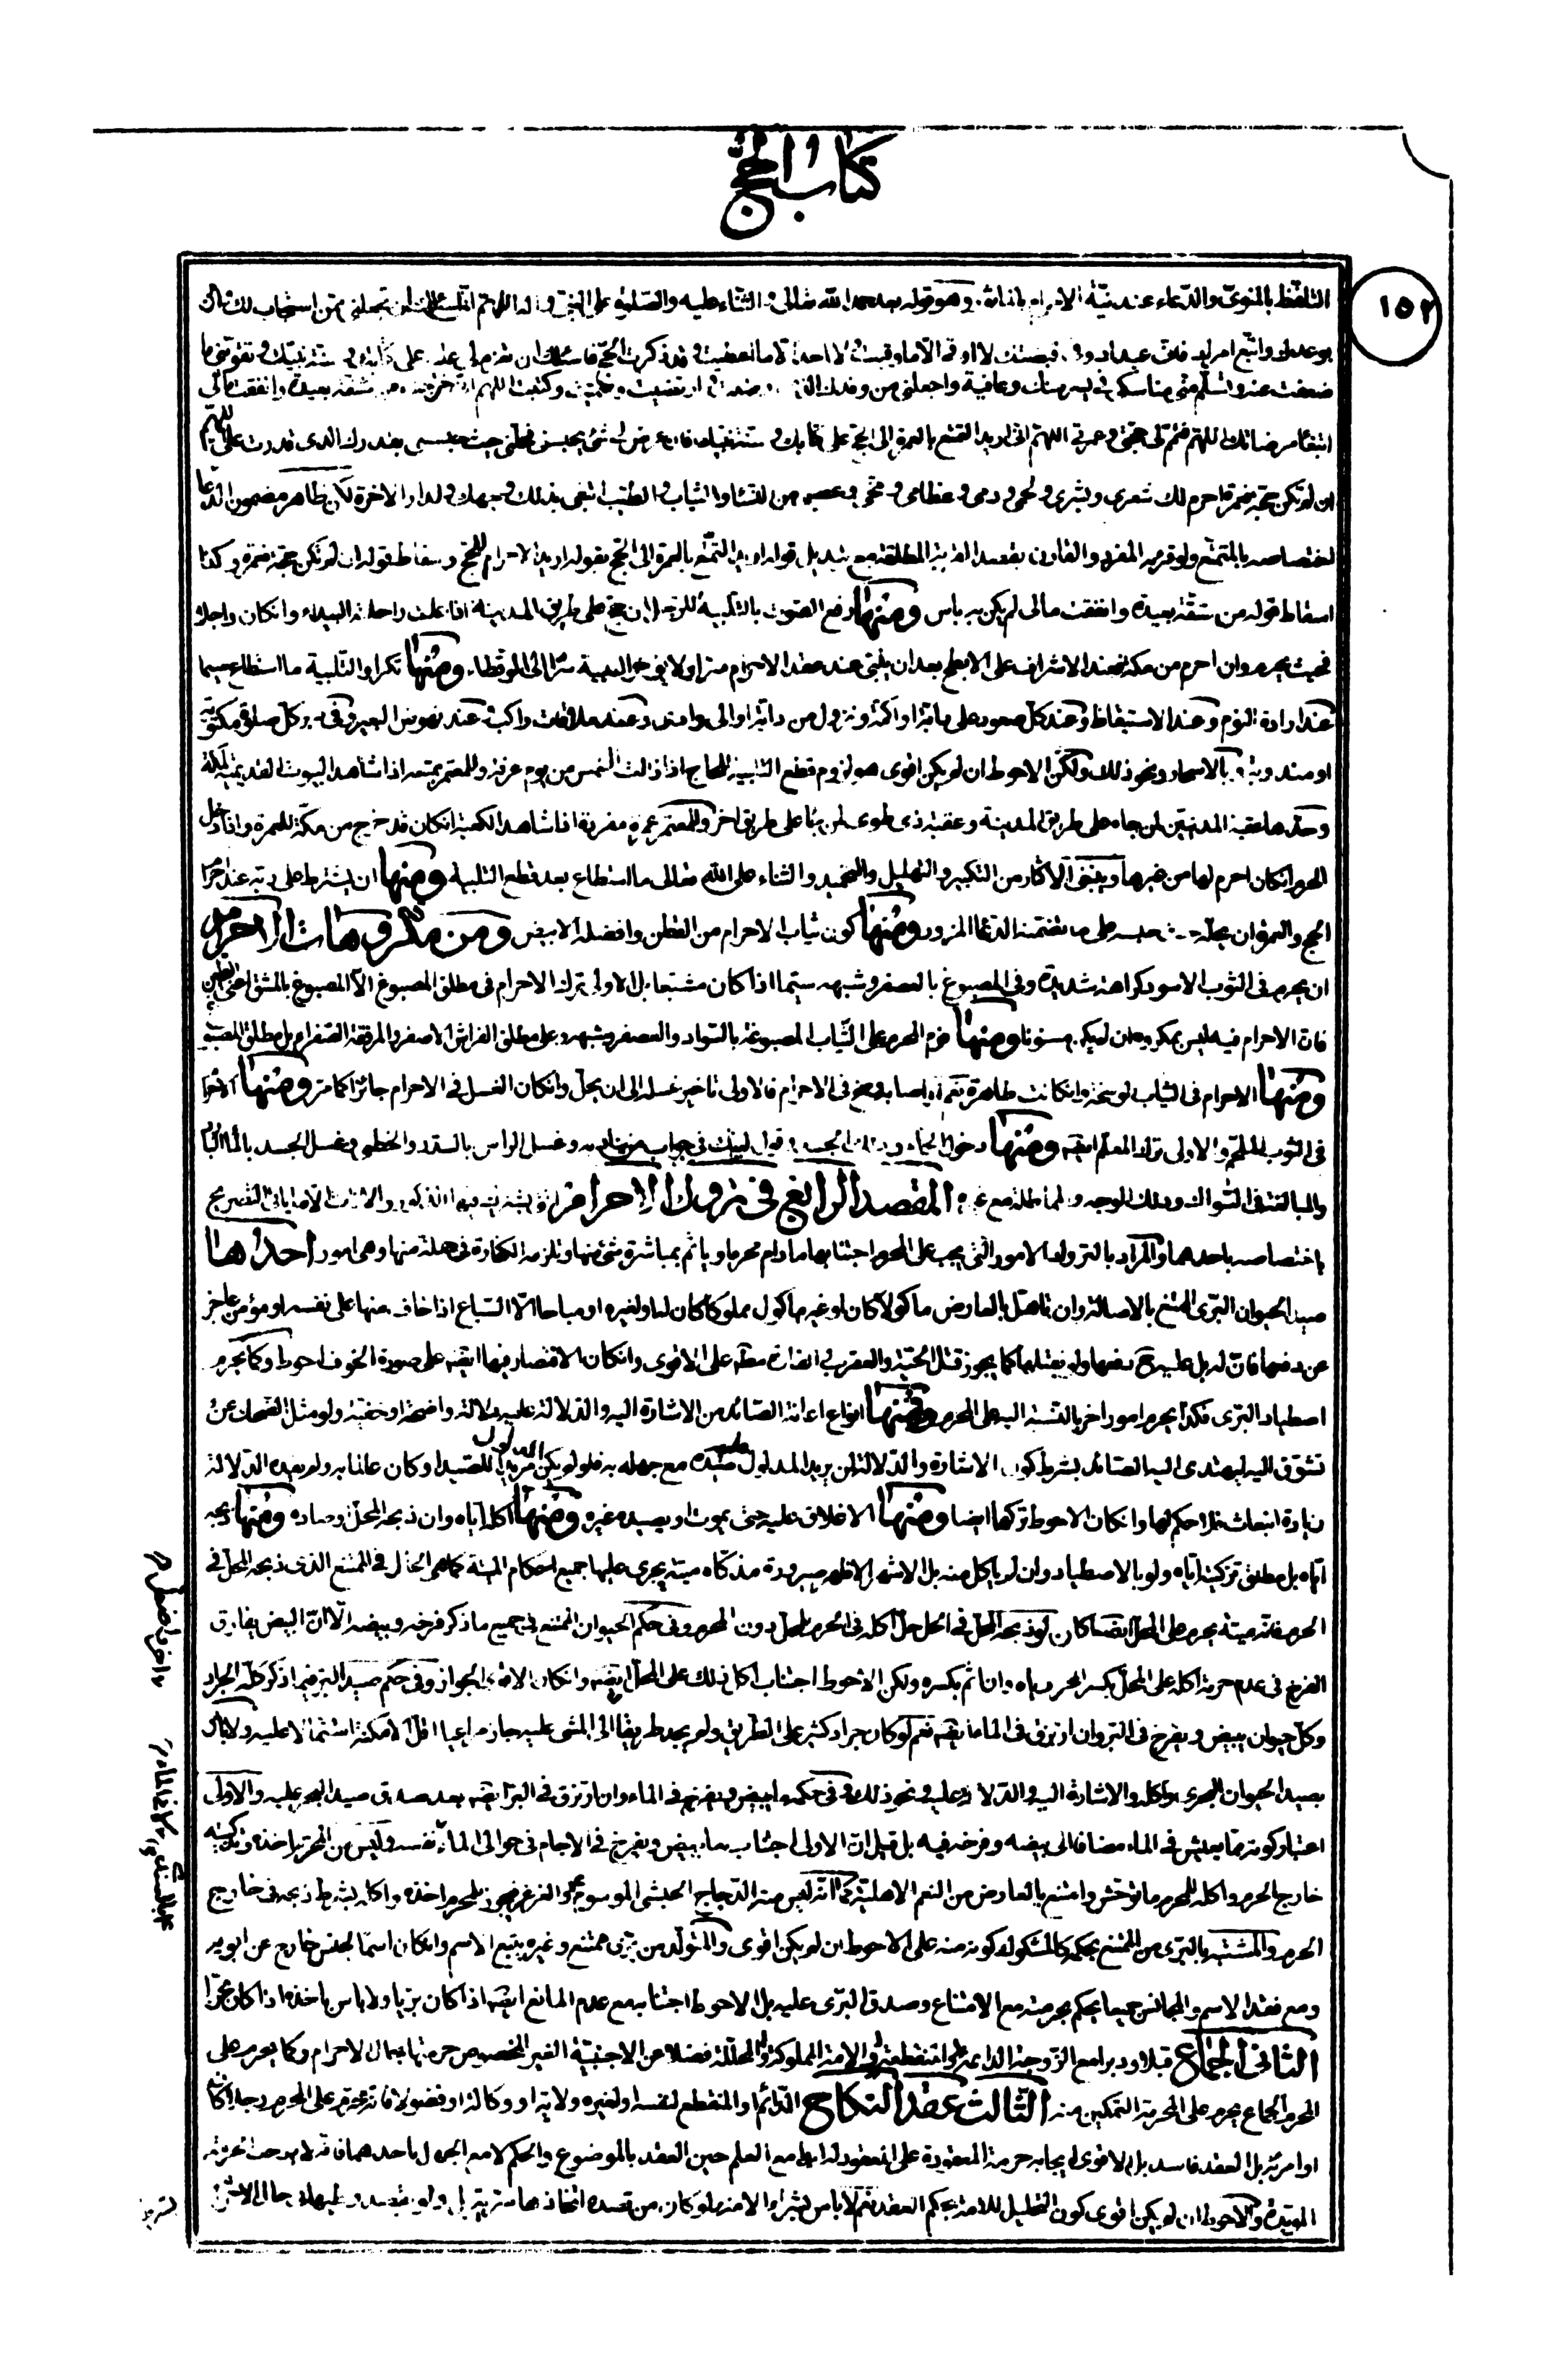 كتاب الحج
١٥٢
التلفظ بالمنوي والدعاء عند نية الاحرام وهو قوله بعد حمد الله تعالى والثناء عليه والصلوة على النبي اللهم اني اسئلك ان تجعلني ممن استجاب لك وامن
بوعدك واتبع امرك فاني عبدك وفي قبضتك لا اوقى الا ما وقيت ولا اخذ الا ما اعطيت وقد ذكرت الحج فاسئلك ان تعزم لي عليه على كتابك وسنة نبيك وتقويني على ما
ضعفت عنه وتسلم مني مناسكي في يسر منك وعافية واجعلني من وفدك الذين رضيت وارتضيت وسميت وكتبت اللهم اني خرجت من شقة بعيدة وانفقت مالي
ابتغاء مرضاتك اللهم فتمم لي حجتي وعمرتي اللهم اني اريد التمتع بالعمرة الى الحج على كتابك وسنة نبيك فان عرض لي شيء يحبسني فحلني حيث حبستني بقدرك الذي قدرت علي اللهم
ان لم تكن حجة فعمرة احرم لك شعري وبشري ولحمي ودمي وعظامي ومخي وعصبي من النساء والثياب والطيب ابتغي بذلك وجهك والدار الاخرة لكن ظاهر مضمون الدعاء
اختصاصه بالمتمتع ولو قرئه المفرد والقارن بقصد القربة المطلقة مع تبديل قوله اريد التمتع بالعمرة الى الحج بقوله اريد الاحرام للحج واسقاط قوله ان لم تكن حجة فعمرة وكذا
اسقاط قوله من شقة بعيدة وانفقت مالي لم يكن به باس ومنها رفع الصوت بالتلبية للرجل ان حج على طريق المدينة اذا علت راحلته البيداء وان كان راجلا
فحيث يحرم وان احرم من مكة فعند الاشراف على الابطح بعد ان يلبي عند عقد الاحرام سرا ولا يؤخر التلبية سرا الى الموقظاء ومنها تكرار التلبية ما استطاع سيما
عند ارادة النوم وعند الاستيقاظ وعند كل صعود على دابة او اكمة ونزول من دابة او الى وادي وعند ملاقات راكب وعند نهوض البعير وفي دبر كل صلوة مكتوبة
او مندوبة وبالاسحار ونحو ذلك ولكن الاحوط ان لم يكن اقوى هو لزوم قطع التلبية للحاج اذا زالت الشمس من يوم عرفة وللمعتمر بمتعة اذا شاهد البيوت القديمة لمكة
وحدها عقبة المدنيين لمن جاء على طريق المدينة وعقبة ذي طوى لمن جاء على طريق اخر وللمعتمر عمرة مفردة اذا شاهد الكعبة ان كان قد خرج من مكة للعمرة واذا دخل
الحرم ان كان احرم لها من غيرها وينبغي الاكثار من التكبير والتهليل والتحميد والثناء على الله تعالى ما استطاع بعد قطع التلبية ومنها ان يشترط على ربه عند احرام
الحج والعمرة ان يحله حيث حبسه على ما تضمنه الدعاء المزبور ومنها كون ثياب الاحرام من القطن وافضله الابيض ومن مكروهات الاحرام
ان يحرم في الثوب الاسود كراهة شديدة وفي المصبوغ بالعصفر وشبهه سيما اذا كان مشبعا بل الاولى ترك الاحرام في مطلق المصبوغ الا المصبوغ بالمشق اعني الطين
فان الاحرام فيه ليس بمكروه وان لم يكن مسنونا ومنها نوم المحرم على الثياب المصبوغة بالسواد والعصفر وشبهه وعلى مطلق الفراش الاصفر والمرفقة الصفراء بل مطلق المصبوغ
ومنها الاحرام في الثياب الوسخة وان كانت طاهرة نعم لو اصابه وسخ في الاحرام فالاولى تاخير غسله الى ان يحل وان كان الغسل في الاحرام جائزا كما مر ومنها الاحرام
في الثوب الملحم والاولى ترك المعلم ايضا ومنها دخول الحمام ودلك الجسد وقول لبيك في جواب من يناديه وغسل الراس بالسدر والخطمي وغسل الجسد بالماء البارد
والمبالغة في السواك ودلك الوجه المقصد الرابع في تروك الاحرام
باختصاصه باحدهما والمراد بالتروك الامور التي يجب على المحرم اجتنابها ما دام محرما وياثم بمباشرة شيء منها وتلزمه الكفارة في جملة منها وهي امور احدها
صيد الحيوان البري الممتنع بالاصالة وان تاهل بالعارض ماكولا كان او غير ماكول مملوكا كان له او لغيره او مباحا الا السباع اذا خاف منها على نفسه او مؤمن عاجز
عن دفعها فان له بل عليه دفعها ولو بقتلها كما يجوز قتل الحية والعقرب والفارة مطلقا على الاقوى وان كان الاقتصار فيها ايضا على صورة الخوف احوط وكما يحرم
اصطياد البري فكذا يحرم امور اخر بالنسبة اليه على المحرم منها انواع اعانة الصائد من الاشارة اليه والدلالة عليه بدلالة واضحة او خفية ولو مثل الضحك عن
تشوق اليه ليهتدي اليه الصائد بشرط كون الاشارة والدلالة لمن يريد المدلول عليه صيده مع جهله به فلو لم يكن المدلول مريدا للصيد او كان عالما به ولم يفده الدلالة
زيادة انبعاث فلا حكم لها وان كان الاحوط تركها ايضا ومنها الاغلاق عليه حتى يموت او يصيده غيره ومنها اكله اياه وان ذبحه المحل وصاده ومنها ذبحه
اياه بل مطلق تزكيته اياه ولو بالاصطياد وان لم ياكل منه بل الاشهر الاظهر صيرورة مذكاه ميتة يجري عليها جميع احكام الميتة كما هي الحال في الممتنع الذي ذبحه المحل في
الحرم فانه ميتة يحرم على المحل ايضا كان لو ذبحه المحل في الحل حل اكله في الحرم للمحل دون المحرم وفي حكم الحيوان الممتنع في جميع ما ذكر فرخه وبيضه الا ان البيض يفارق
الفرخ في عدم حرمة اكله على المحل بكسر المحرم اياه وان اثم بكسره ولكن الاحوط اجتناب اكل ذلك على المحل ايضا وان كان الاقوى الجواز وفي حكم صيد البر فيما ذكر كله الجراد
وكل حيوان يبيض ويفرخ في البر وان ارتزق في الماء ايضا نعم لو كان جراد كثير على الطريق ولم يجد طريقا الى المشي عليه جاز مراعيا اقل الامكنة اشتمالا عليه ولا باس
بصيد الحيوان البحري واكله والاشارة اليه والدلالة عليه ونحو ذلك وفي حكمه ما يبيض ويفرخ في الماء وان ارتزق في البر ايضا بعد صدق صيد البحر عليه والاولى
اعتبار كونه مما يعيش في الماء مضافا الى بيضه وفرخه فيه بل قيل ان الاولى اجتناب ما يبيض ويفرخ في الاجام في حوالي الماء نفسه وليس من المحرم اخذه وتزكيته
خارج الحرم واكله للمحرم ما توحش وامتنع بالعارض من النعم الاهلية كما انه ليس منه الدجاج الحبشي الموسوم بالغرغر فيجوز للمحرم اخذه واكله بشرط ذبحه في خارج
الحرم والمشتبه بالبري من الممتنع بحكمه كالمشكوك كونه منه على الاحوط ان لم يكن اقوى والمتولد من بري ممتنع وغيره يتبع الاسم وان كان اسما لجنس خارج عن ابويه
ومع فقد الاسم والمجانس جميعا يحكم بحرمته مع الامتناع وصدق البري عليه بل الاحوط اجتنابه مع عدم المانع ايضا اذا كان بريا ولا باس باخذه اذا كان بحريا
الثاني الجماع قبلا ودبرا مع الزوجة الدائمة والمنقطعة والامة المملوكة والمحللة فضلا عن الاجنبية الغير المخصوص حرمتها بحال الاحرام وكما يحرم على
المحرم الجماع يحرم على المحرمة التمكين منه الثالث عقد النكاح الدائم او المنقطع لنفسه او لغيره ولاية او وكالة او فضولا فانه محرم على المحرم رجلا كان
او امرئة بل العقد فاسد بل الاقوى ايجابه حرمة المعقودة على المعقود له ابدا مع العلم حين العقد بالموضوع والحكم لا مع الجهل باحدهما فانه لا يوجب حرمته
المؤبدة والاحوط ان لم يكن اقوى كون التحليل للامة بحكم العقد نعم لا باس بشراء الامة ولو كان من قصده اتخاذها سرية